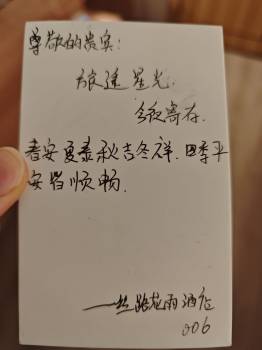 尊敬的贵宾:
旅途星光,
今夜寄存.
春安夏泰秋吉冬祥.四季平
安皆顺畅.
——丝路花雨酒店
006